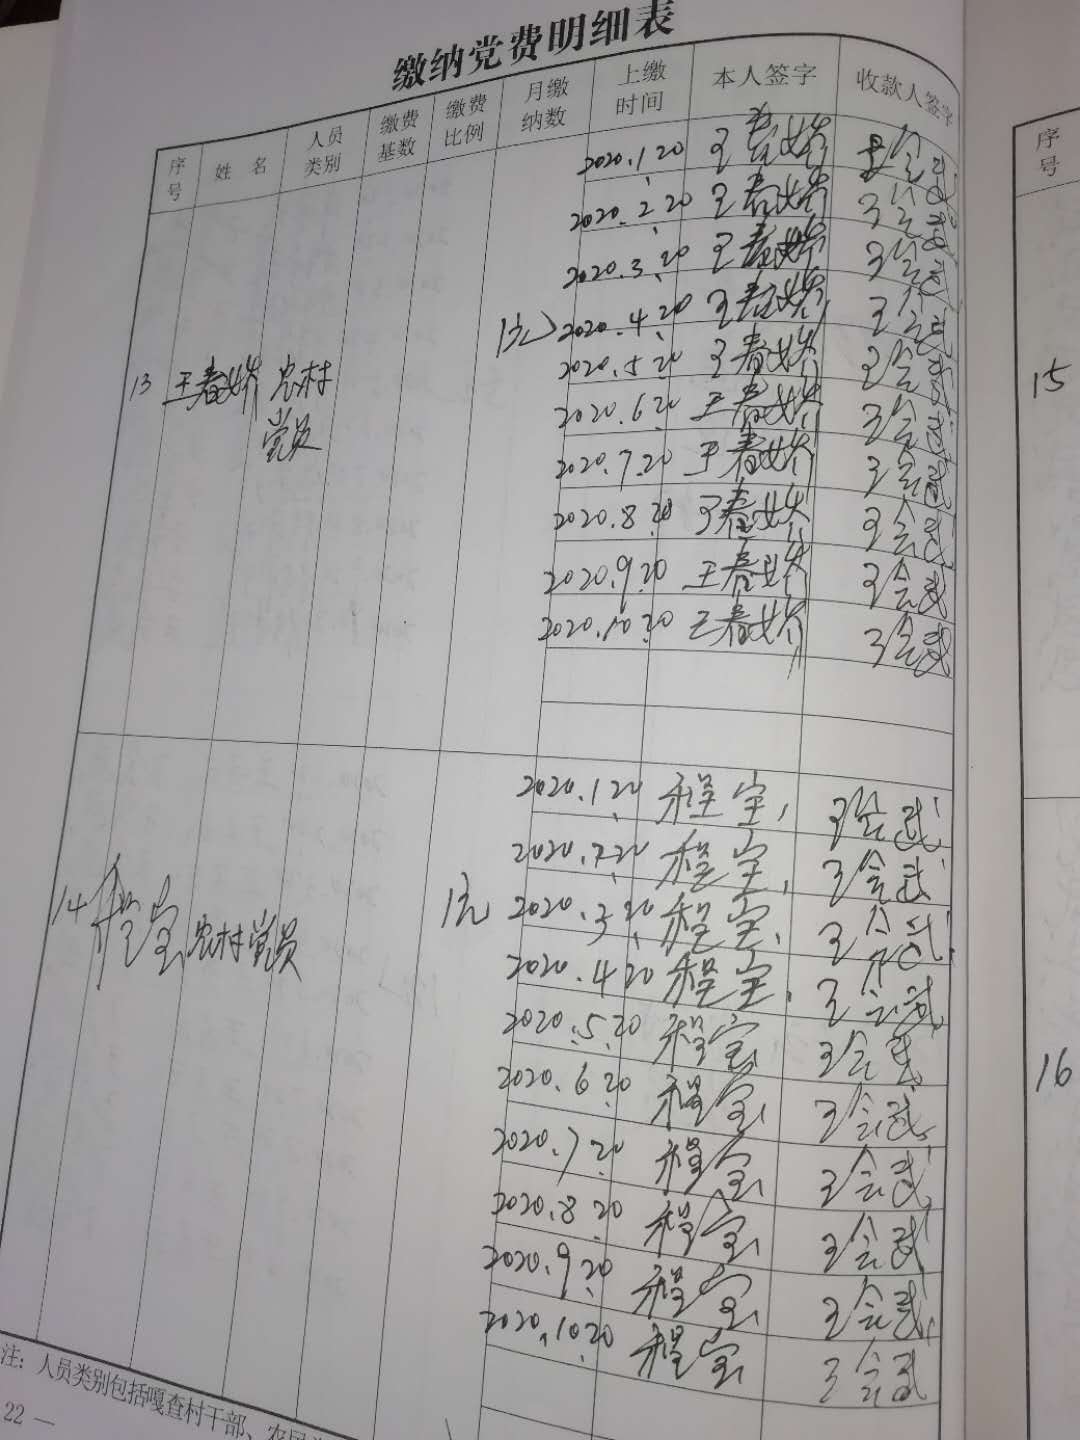 缴纳党费明细表
序号 姓名 人员类别 缴费基数 缴费比例 月缴纳数 上缴时间 本人签字 收款人签字
13 王春娇 农村党员 1元
2020.1.20 王春娇 王会武
2020.2.20 王春娇 王会武
2020.3.20 王春娇 王会武
2020.4.20 王春娇 王会武
2020.5.20 王春娇 王会武
2020.6.20 王春娇 王会武
2020.7.20 王春娇 王会武
2020.8.20 王春娇 王会武
2020.9.20 王春娇 王会武
2020.10.20 王春娇 王会武
14 程宝 农村党员 1元
2020.1.20 程宝 王会武
2020.2.20 程宝 王会武
2020.3.20 程宝 王会武
2020.4.20 程宝 王会武
2020.5.20 程宝 王会武
2020.6.20 程宝 王会武
2020.7.20 程宝 王会武
2020.8.20 程宝 王会武
2020.9.20 程宝 王会武
2020.10.20 程宝 王会武
注：人员类别包括嘎查村干部、农
22 —
序号
15
16